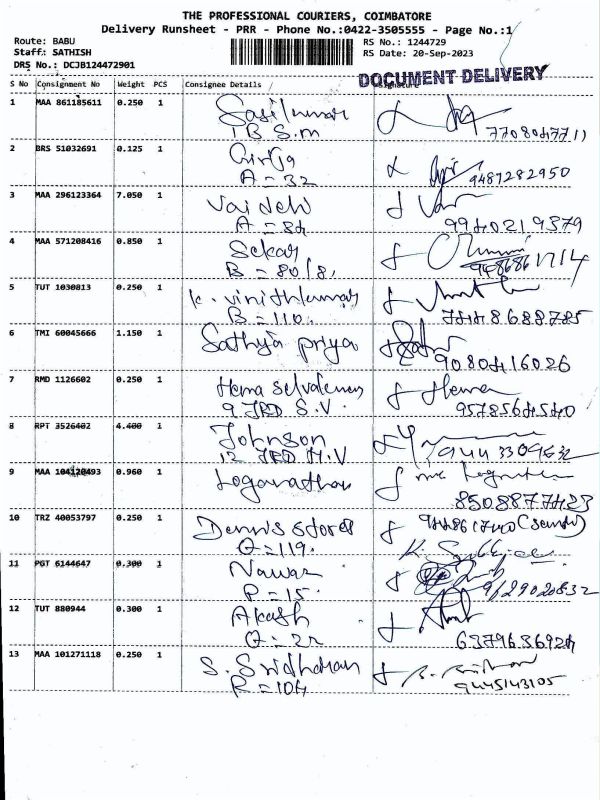 THE PROFESSIONAL COURIERS, COIMBATORE
Delivery Runsheet - PRR - Phone No.:0422-3505555 - Page No.:1
Route: BABU
RS No.: 1244729
Staff: SATHISH
RS Date: 20-Sep-2023
DRS No.: DCJB124472901
DOCUMENT DELIVERY
S No Consignment No Weight PCS Consignee Details Signature
1 MAA 861185611 0.250 1 Sasikumar
1 B S.M
2 BRS 51032691 0.125 1 Girija
A = 32 9487282950
3 MAA 296123364 7.050 1 Vaidehi
A = 84 9940219379
4 MAA 571208416 0.850 1 Sekar
B = 80/8.
5 TUT 1030813 0.250 1 K. Vinithkumar
B = 110. 7448688785
6 TMI 60045666 1.150 1 Sathya priya
9080416026
7 RMD 1126602 0.250 1 Hema
9 JRD S.V. 9578564540
8 RPT 3526402 4.400 1 Johnson
12 JRD M.V 9443309632
9 MAA 104120493 0.960 1 Loganathan
8508877423
10 TRZ 40053797 0.250 1 Dennis stores
Q = 119.
11 PGT 6144647 0.300 1 Nawaz
P = 15. 9129020832
12 TUT 880944 0.300 1 Akash
Q = 22 6379636924
13 MAA 101271118 0.250 1 S. Sridharan
R = 104 9445143105